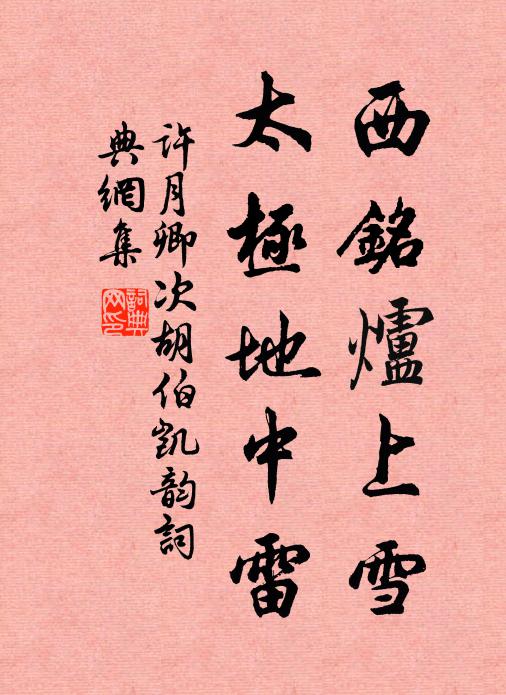 西銘爐上雪
太極地中雷
許月卿次胡伯凱韵詞
典網集
詞典網印